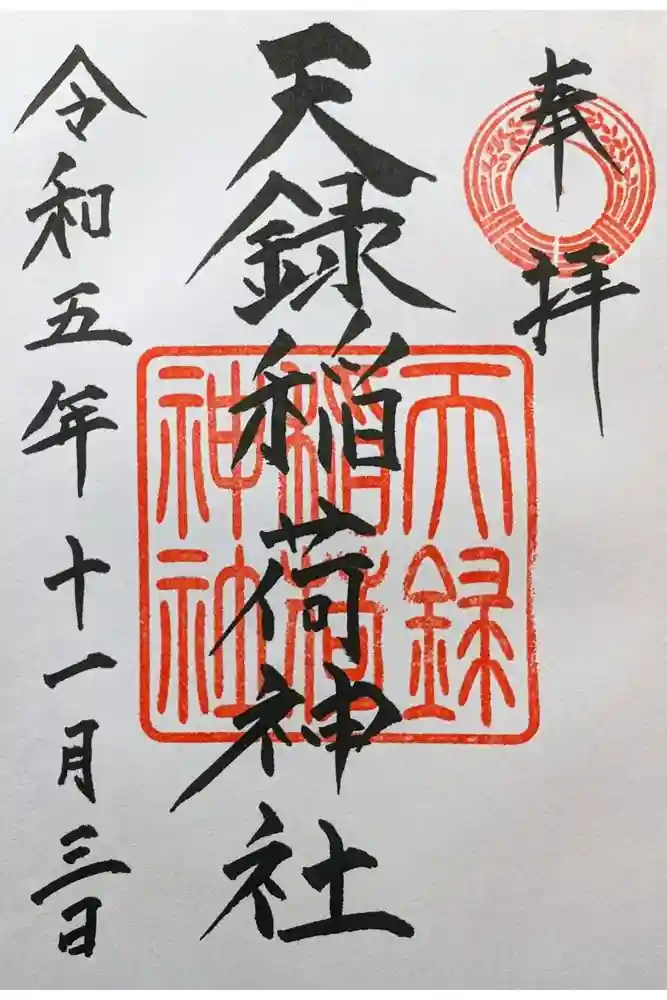 奉拝
天録稲荷神社
天録
稲荷
神社
令和五年十一月三日